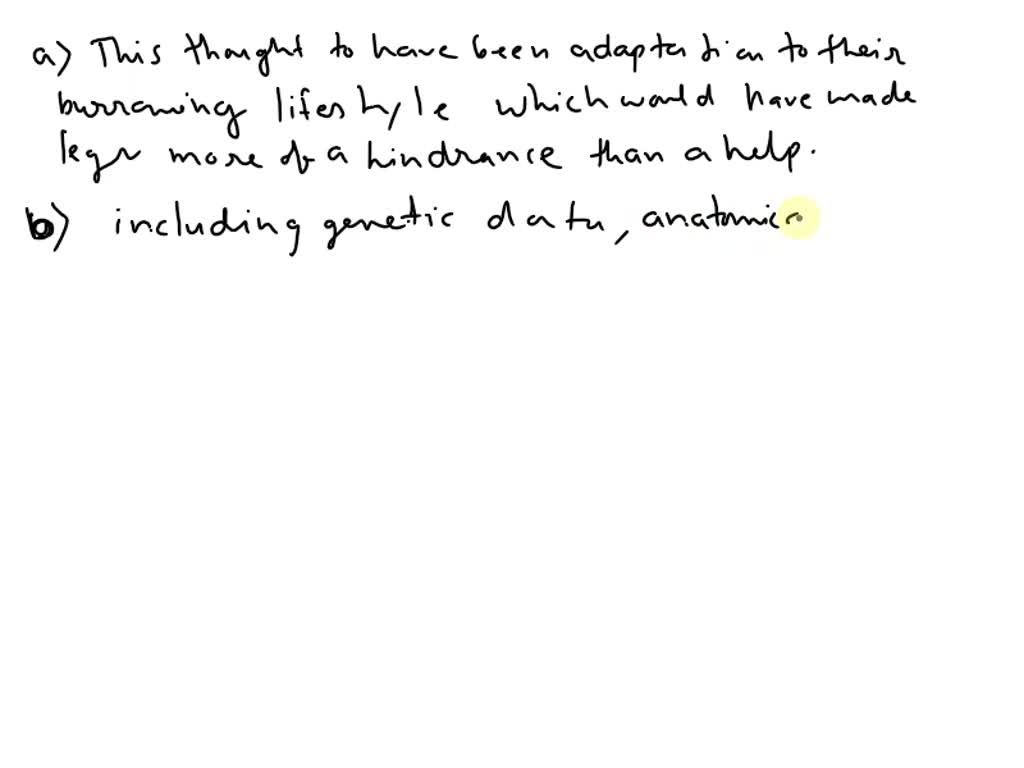 a) This thought to have been adaptation to their
burrowing lifestyle which would have made
legs more of a hindrance than a help.
b) including genetic data, anatomic